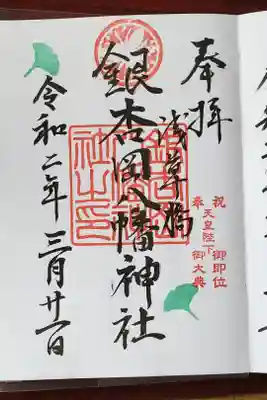 奉拝
浅草橋
銀杏岡八幡神社
令和二年三月廿一日
祝
天皇陛下
御即位
奉
御大典